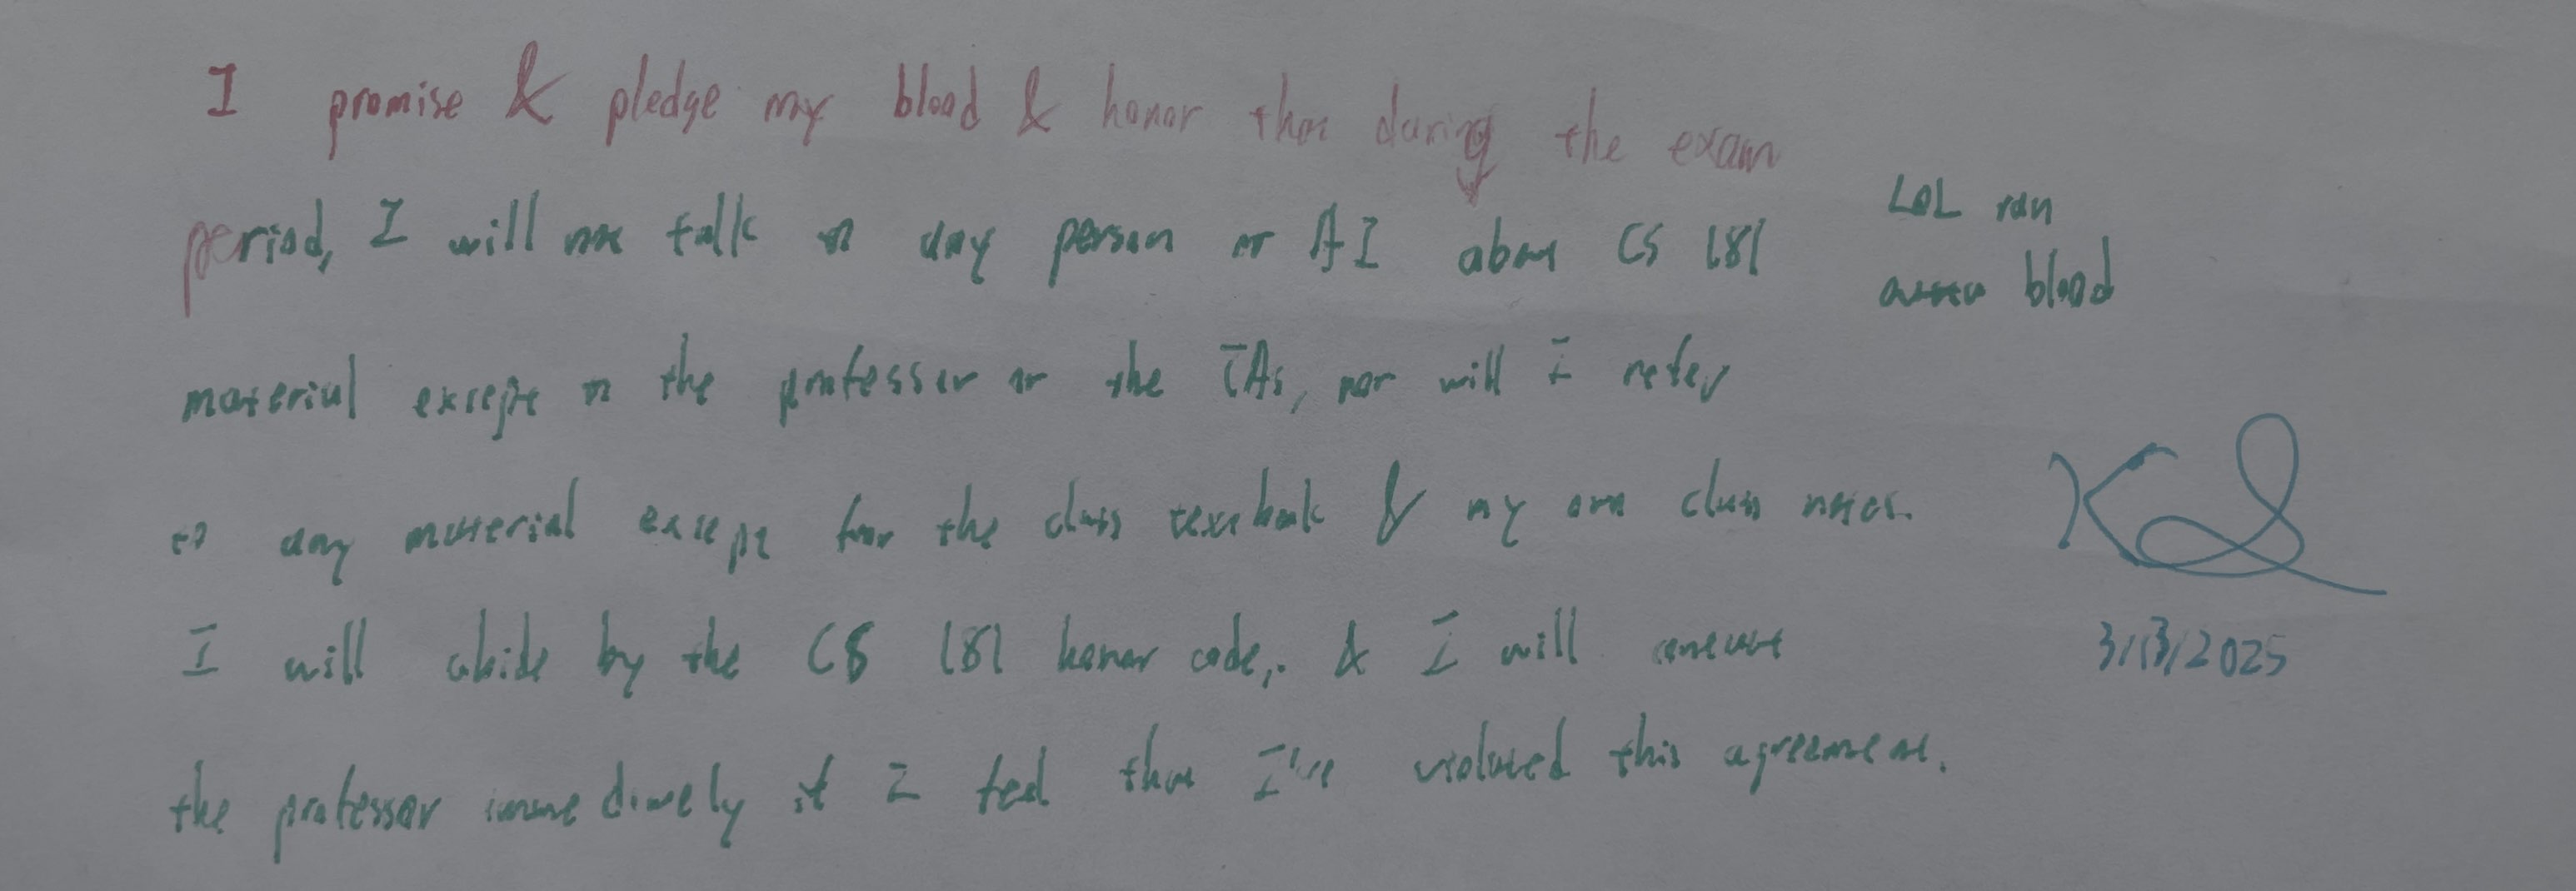 I promise & pledge my blood & honor that during the exam
period, I will not talk to any person or AI about CS 181
material except to the professor or the TAs, nor will I refer
to any material except for the class textbook & my own class notes.
I will abide by the CS 181 honor code, & I will contact
the professor immediately if I feel that I've violated this agreement.
LOL ran
blood
3/13/2025